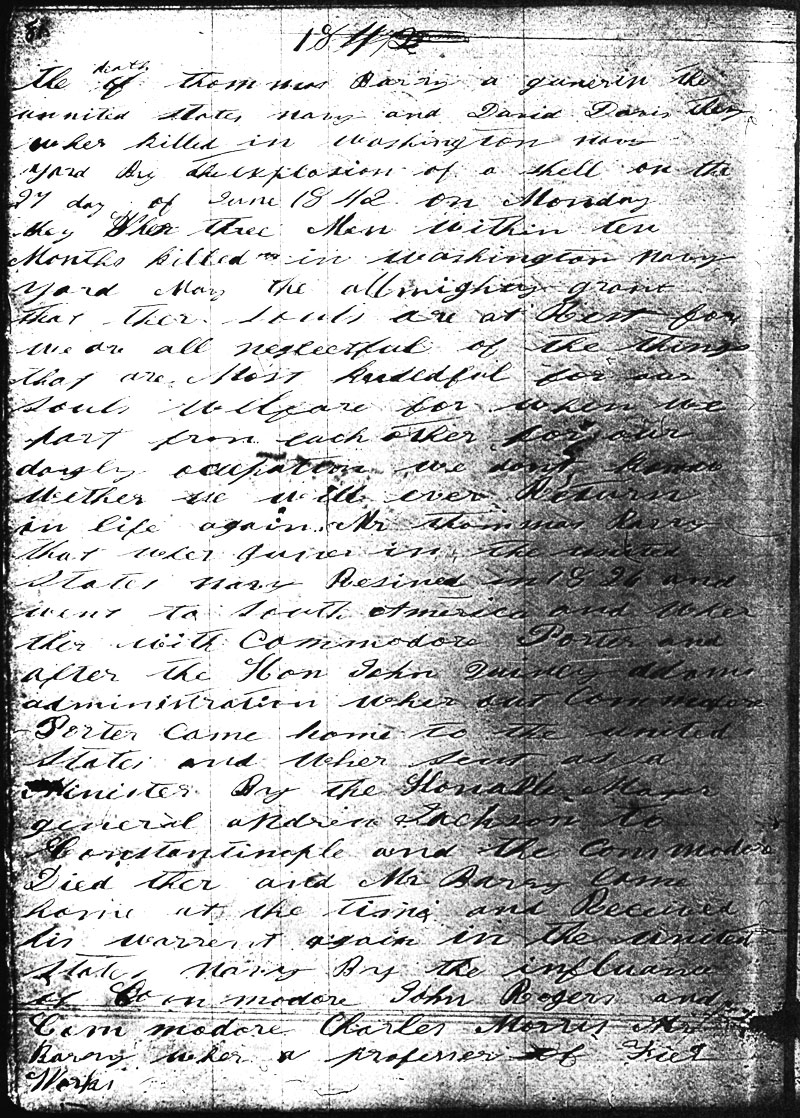 1842
the death of thommas Barry a gunerin the
uunited states navy and David Davis they
wher killed in washington navy
yard By the explosion of a shell on the
27 day of June 1842 on Monday
they Wher three Men within ten
Months killed in washington navy
yard May the allmighty grant
that ther souls are at Rest for
we are all neglectful of the things
that are Most kneedful for our
souls wellfare for when we
part from each other for our
dayly ocupation we dont know
wether we will ever Return
in life again. Mr thommas Barry
that wher guner in the united
states navy Resined in 1826 and
went to South America and wher
ther with Commodore Porter and
after the Hon John Quincy addams
administration wher out Commodore
Porter Came home to the united
states and wher sent as a
Minister By the Honable Major
general andrew Jackson to
Constantinople and the Commodore
Died ther and Mr Barry Come
home at the time and Received
his warrent again in the united
states Navy By the influance
of Commodore John Rogers and
Commodore Charles Morris Mr
Barry wher a professer of Fier
Works